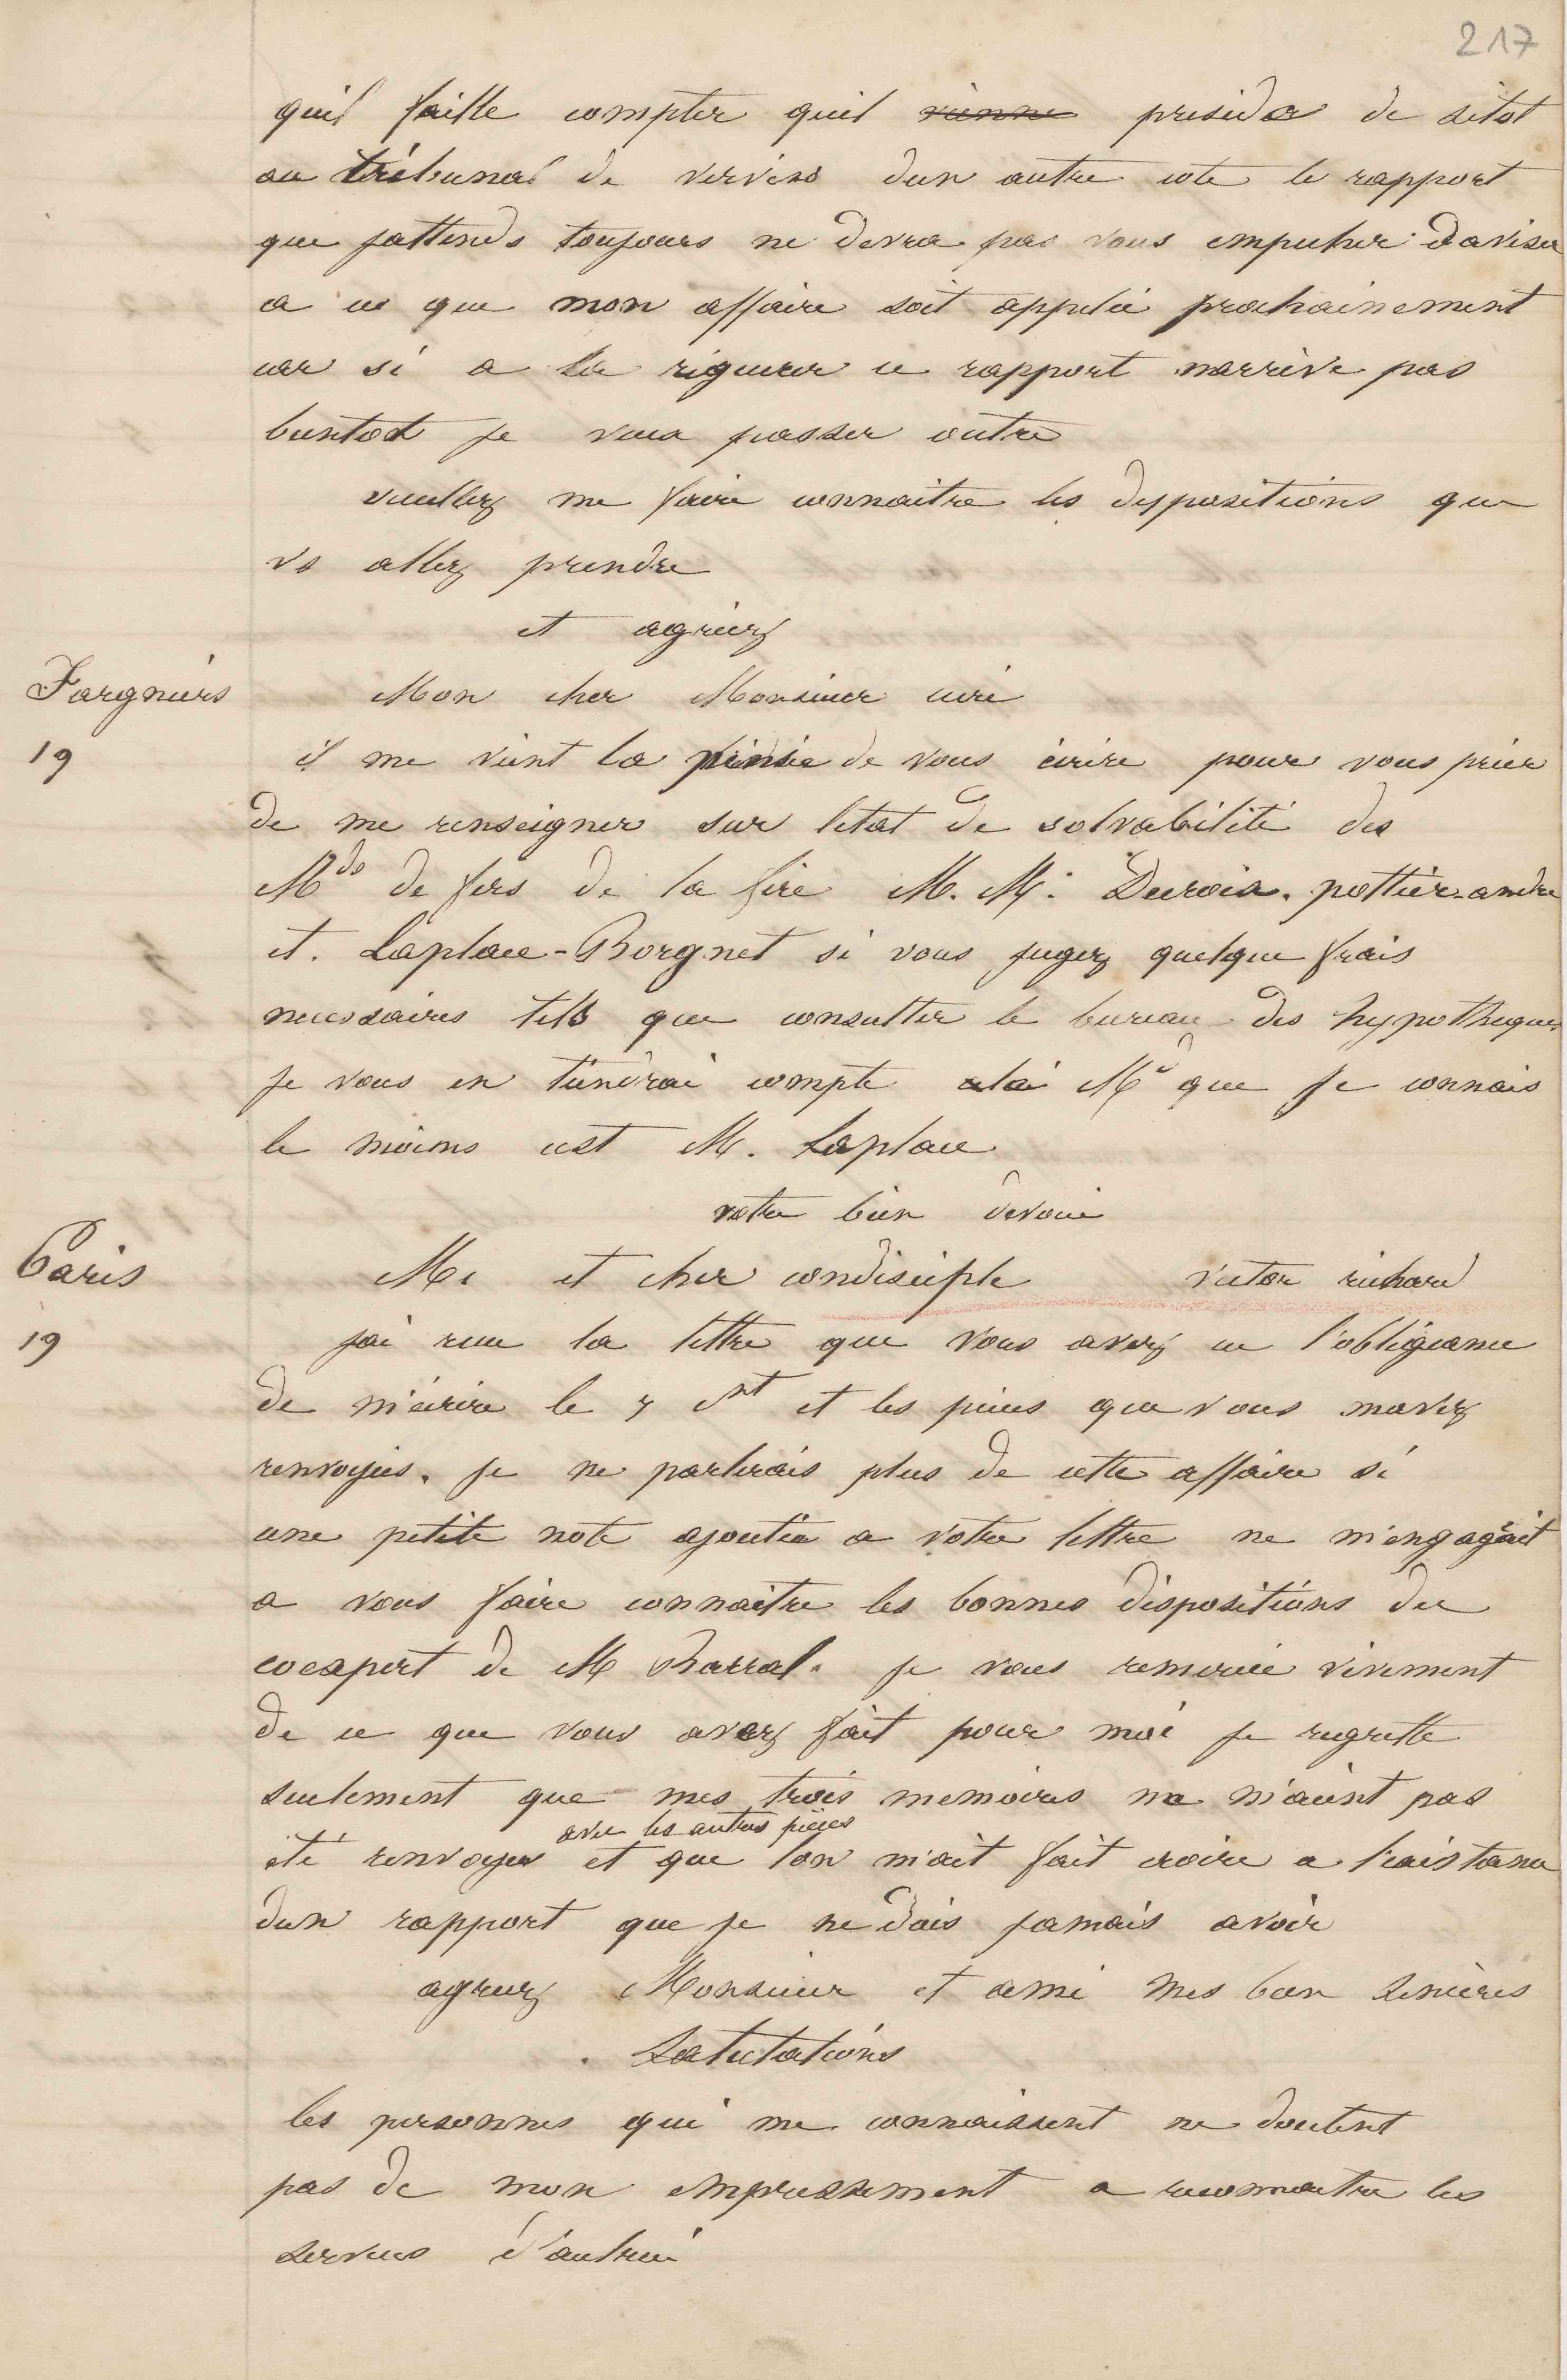 217
quil faille compter quil vienne presider de sitot
au tribunal de vervins dun autre coté le rapport
que jattends toujours ne devra pas vous empecher daviser
a ce que mon affaire soit appelée prochainement
car si a la rigueur ce rapport narrive pas
bientot je veux passer outre
veuillez me faire connaitre les dispositions que
vs allez prendre
et agréez
Fargniers Mon cher Monsieur curé
19 il me vient la pensée de vous écrire pour vous prier
de me renseigner sur letat de solvabilité des
Mds de fers de la fère M. M. Duroia. pottier-andré
et. Laplace-Borgnet si vous jugez quelque frais
necessaires tels que consulter le bureau des hypotheques
je vous en tiendrai compte Md que je connais
le moins cest M. Laplace
votre bien devoué
Paris Mr et cher condisciple victor richard
19 jai recu la lettre que vous avez eu l'obligeance
de m'écrire le 7 ct et les pièces que vous mavez
renvoyées. je ne parlerais plus de cette affaire si
une petite note ajoutée a votre lettre ne m'engageait
a vous faire connaitre les bonnes dispositions du
coexpert de M Barral. je vous remercie vivement
de ce que vous avez fait pour moi je regrette
seulement que mes trois memoires ne m'aient pas
avec les autres pièces
été renvoyes et que lon m'ait fait croire a l'existance
dun rapport que je ne dois jamais avoir
agreez Monsieur et ami mes bien sincères
Salutations
les personnes qui me connaissent ne doutent
pas de mon empressement a reconnaitre les
services d'autrui